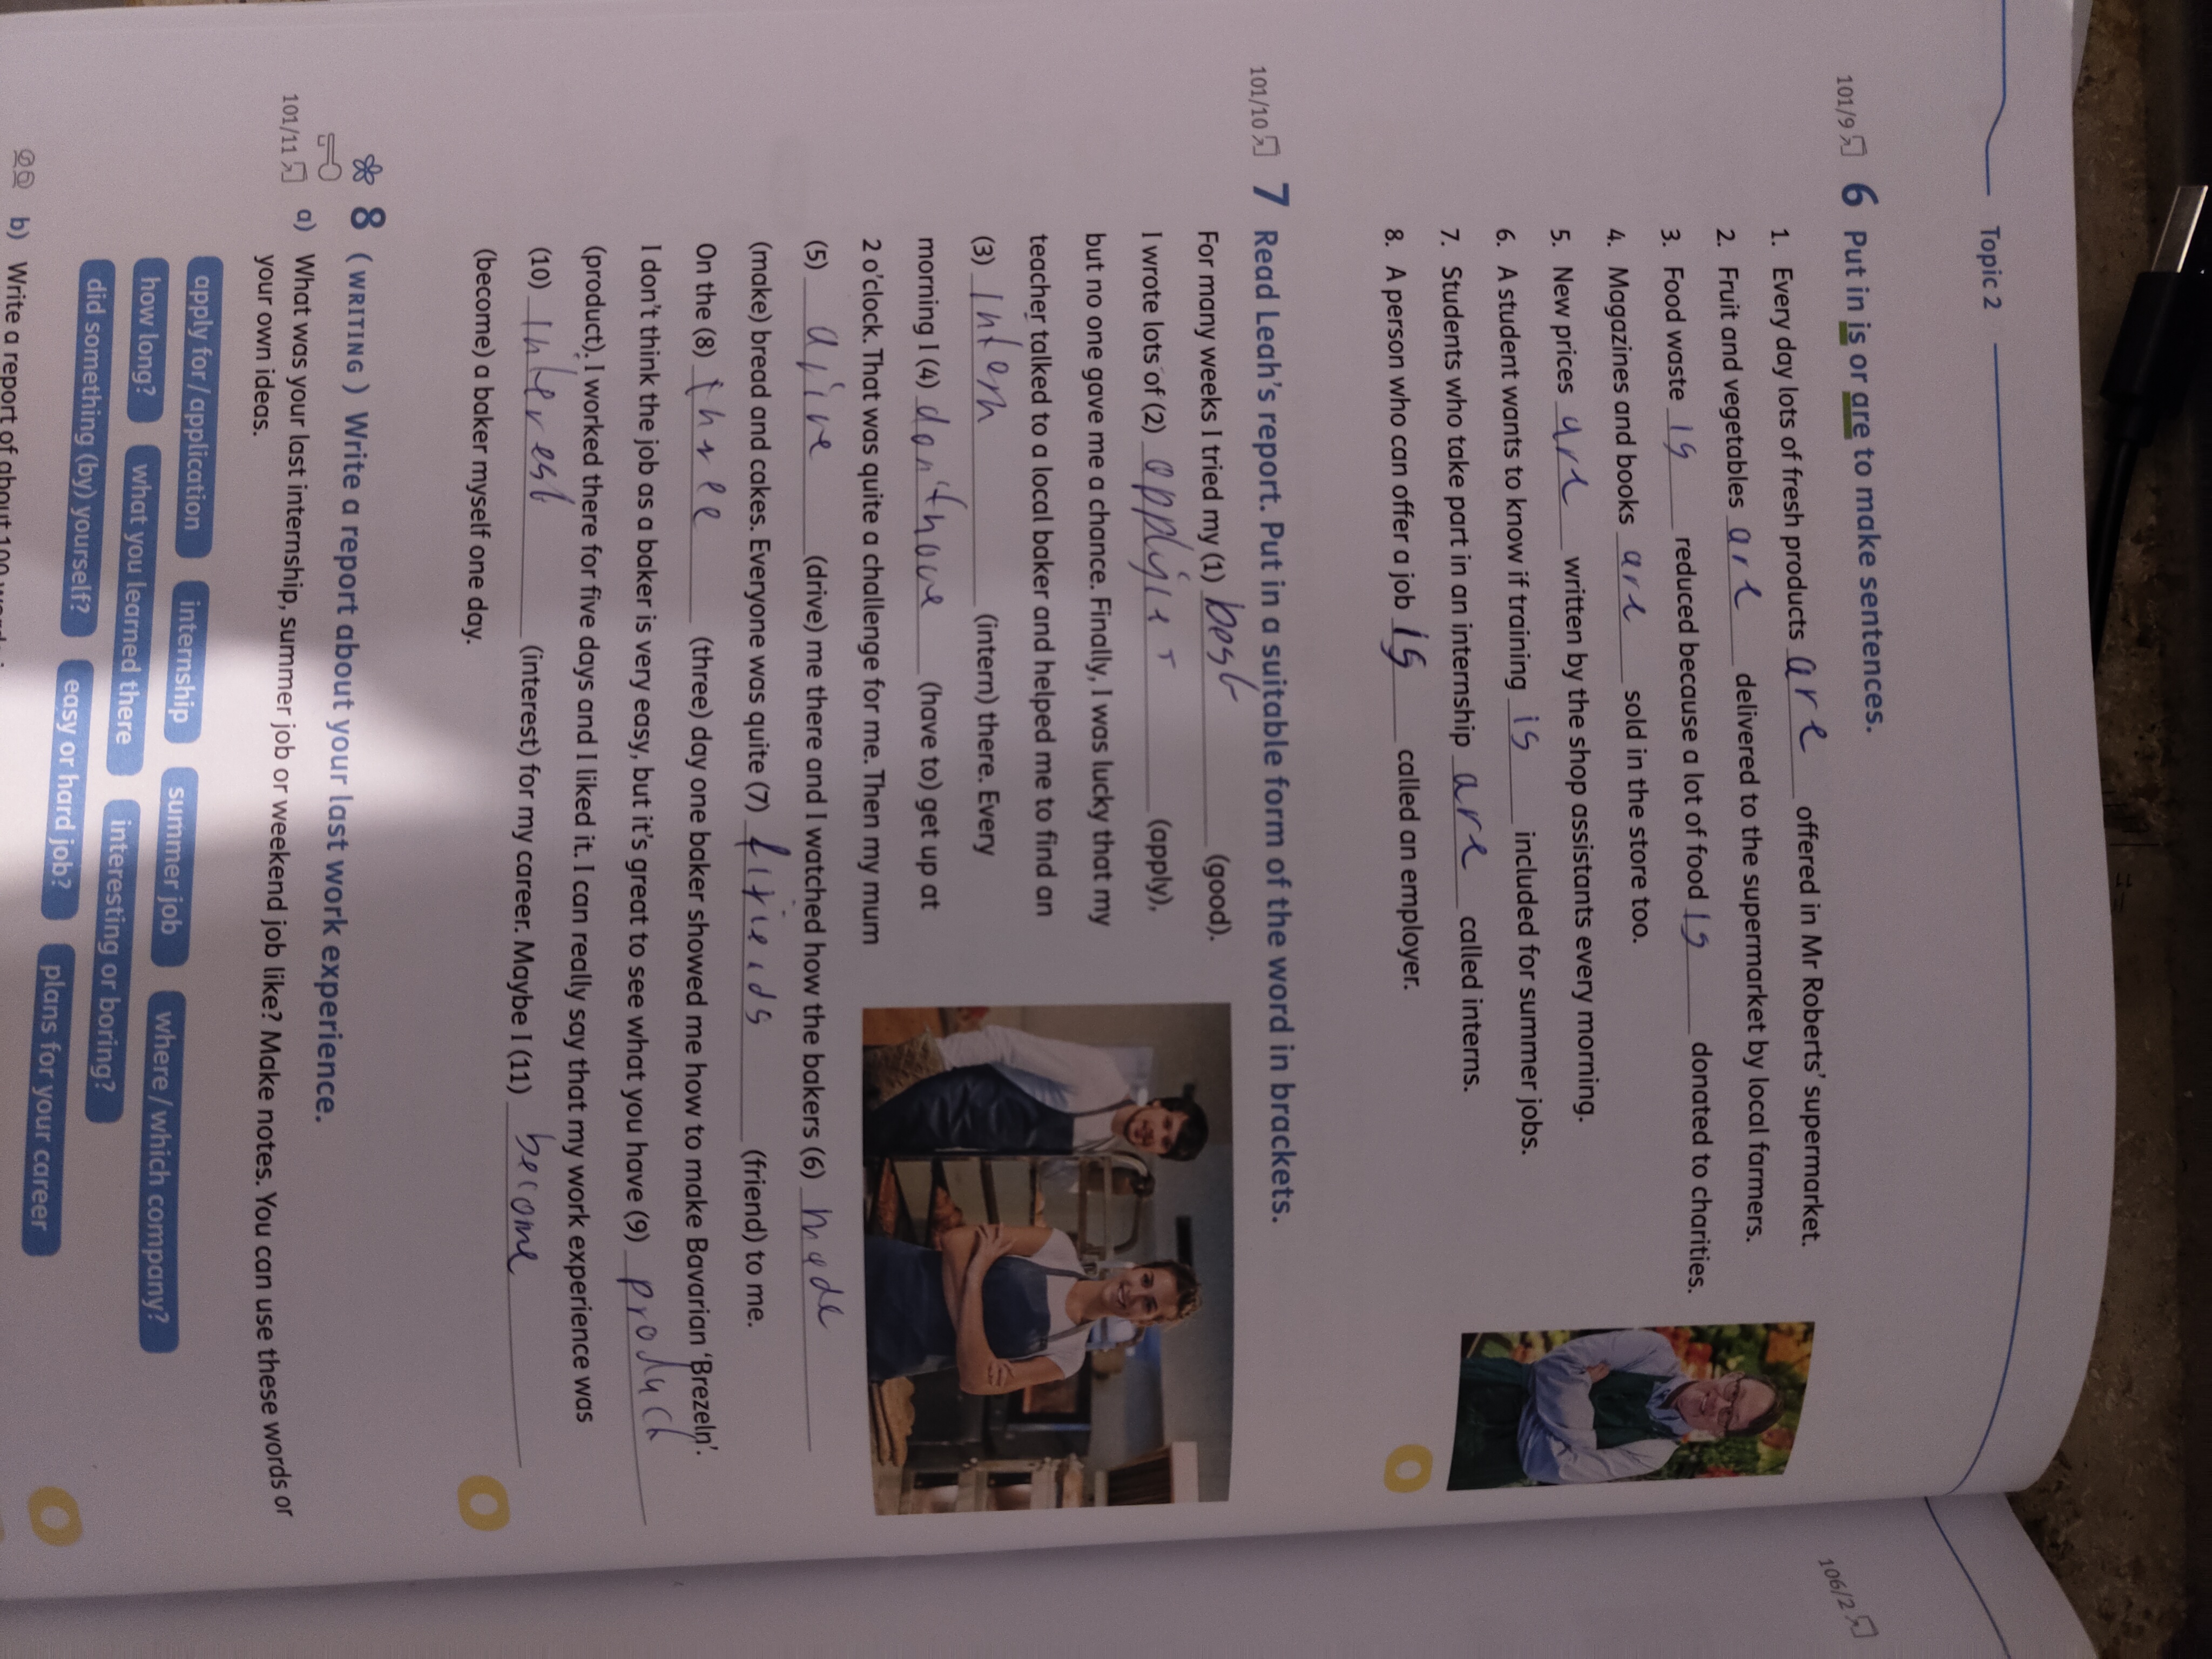 Topic 2
101/9 6 Put in is or are to make sentences.
1. Every day lots of fresh products are offered in Mr Roberts' supermarket.
2. Fruit and vegetables are delivered to the supermarket by local farmers.
3. Food waste is reduced because a lot of food is donated to charities.
4. Magazines and books are sold in the store too.
5. New prices are written by the shop assistants every morning.
6. A student wants to know if training is included for summer jobs.
7. Students who take part in an internship are called interns.
8. A person who can offer a job is called an employer.
101/10 7 Read Leah's report. Put in a suitable form of the word in brackets.
For many weeks I tried my (1) best (good).
I wrote lots of (2) (apply),
but no one gave me a chance. Finally, I was lucky that my
teacher talked to a local baker and helped me to find an
(3) intern (intern) there. Every
morning I (4) don't have (have to) get up at
2 o'clock. That was quite a challenge for me. Then my mum
(5) (drive) me there and I watched how the bakers (6) made
(make) bread and cakes. Everyone was quite (7) (friend) to me.
On the (8) three (three) day one baker showed me how to make Bavarian 'Brezeln'.
I don't think the job as a baker is very easy, but it's great to see what you have (9)
(product). I worked there for five days and I liked it. I can really say that my work experience was
(10) interest (interest) for my career. Maybe I (11) become
(become) a baker myself one day.
8 (WRITING) Write a report about your last work experience.
101/11 a) What was your last internship, summer job or weekend job like? Make notes. You can use these words or
your own ideas.
apply for / application internship summer job where / which company?
how long? what you learned there interesting or boring?
did something (by) yourself? easy or hard job? plans for your career
b) Write a report of about 100
106/2